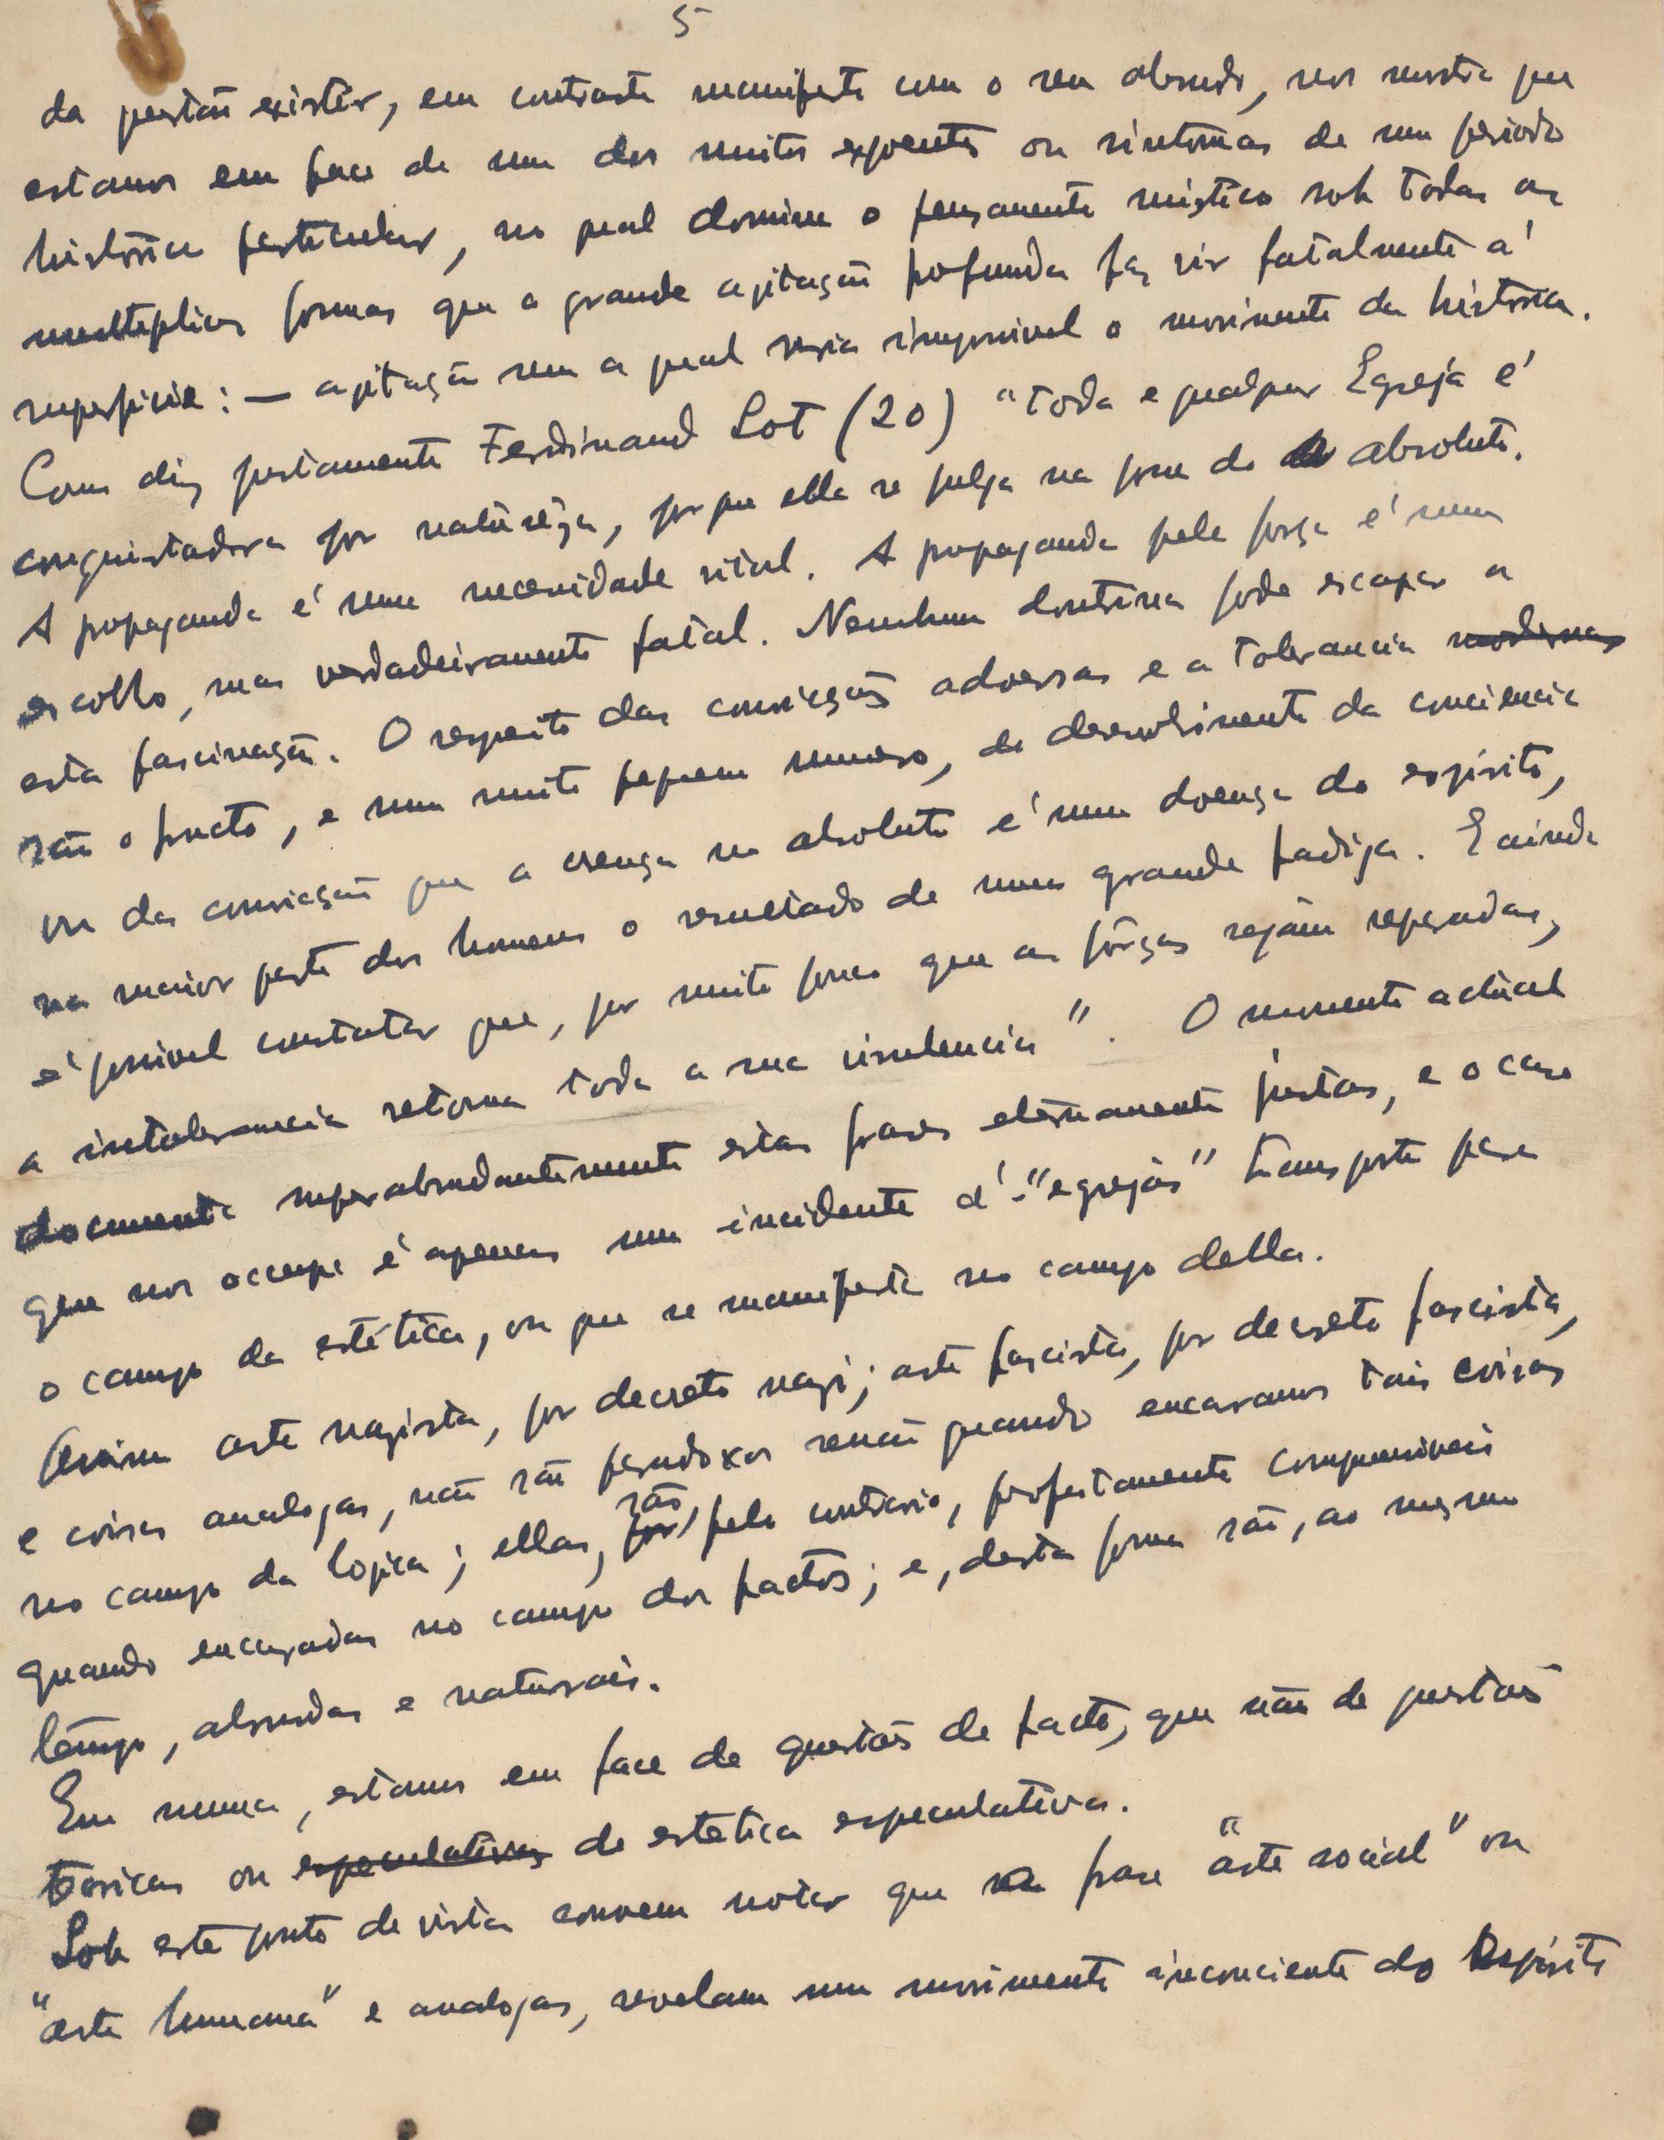 5
da questão existir, em contraste manifesto com o seu absurdo, nos mostra que
estamos em face de um dos muitos expoentes ou sintomas de um periodo
historico particular, no qual domina o pensamento mistico sob todas as
multiplicas formas que a grande agitação profunda faz vir fatalmente á
superficie: — agitação sem a qual seria impossivel o movimento da historia.
Como diz justamente Ferdinand Lot (20) "toda e qualquer Egreja é
conquistadora por naturêza, por que ella se julga na posse do absoluto.
A propaganda é uma necessidade vital. A propaganda pela força é um
escolho, mas verdadeiramente fatal. Nenhuma doutrina pode escapar a
esta fascinação. O respeito das convicções adversas e a tolerancia modernas
são o fructo, e num muito pequeno numero, do desenvolvimento da conciencia
ou da convicção que a crença no absoluto é uma doença do espirito,
na maior parte dos homens o resultado de uma grande fadiga. E ainda
é possivel constatar que, por muito pouco que as fôrças sejam reparadas,
a intolerancia retoma toda a sua virulencia". O momento actual
documenta superabundantemente estas frases eternamente justas, e o caso
que nos occupa é apenas um incidente d'"egrejas" transporto para
o campo da estética, ou que se manifesta no campo della.
Assim arte nazista, por decreto nazi; arte fascista, por decreto fascista,
e coisas analogas, não são paradoxos senão quando encaramos tais coisas
no campo da logica; ellas, são, pelo contrario, perfeitamente compreensiveis
quando encaradas no campo dos factos; e, desta forma são, ao mesmo
tempo, absurdas e naturais.
Em suma, estamos em face de questões de facto, que não de questões
teoricas ou especulativas de estetica especulativa.
Sob este ponto de vista convem notar que a frase "arte social" ou
"arte humana" e analogas, revelam um movimento inconciente do Espirito